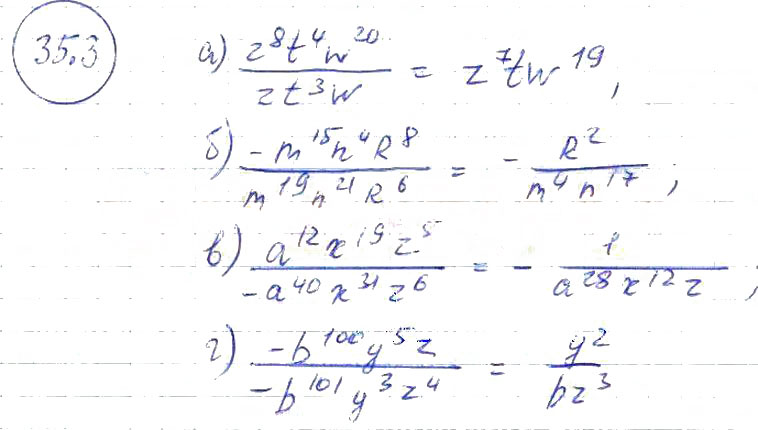 35.3 а) \frac{z^8t^4w^{20}}{zt^3w} = z^7tw^{19},
б) \frac{-m^{15}n^4k^8}{m^{19}n^{21}k^6} = -\frac{k^2}{m^4n^{17}};
в) \frac{a^{12}x^{19}z^5}{-a^{40}x^{31}z^6} = -\frac{1}{a^{28}x^{12}z};
г) \frac{-b^{100}y^5z}{-b^{101}y^3z^4} = \frac{y^2}{bz^3}